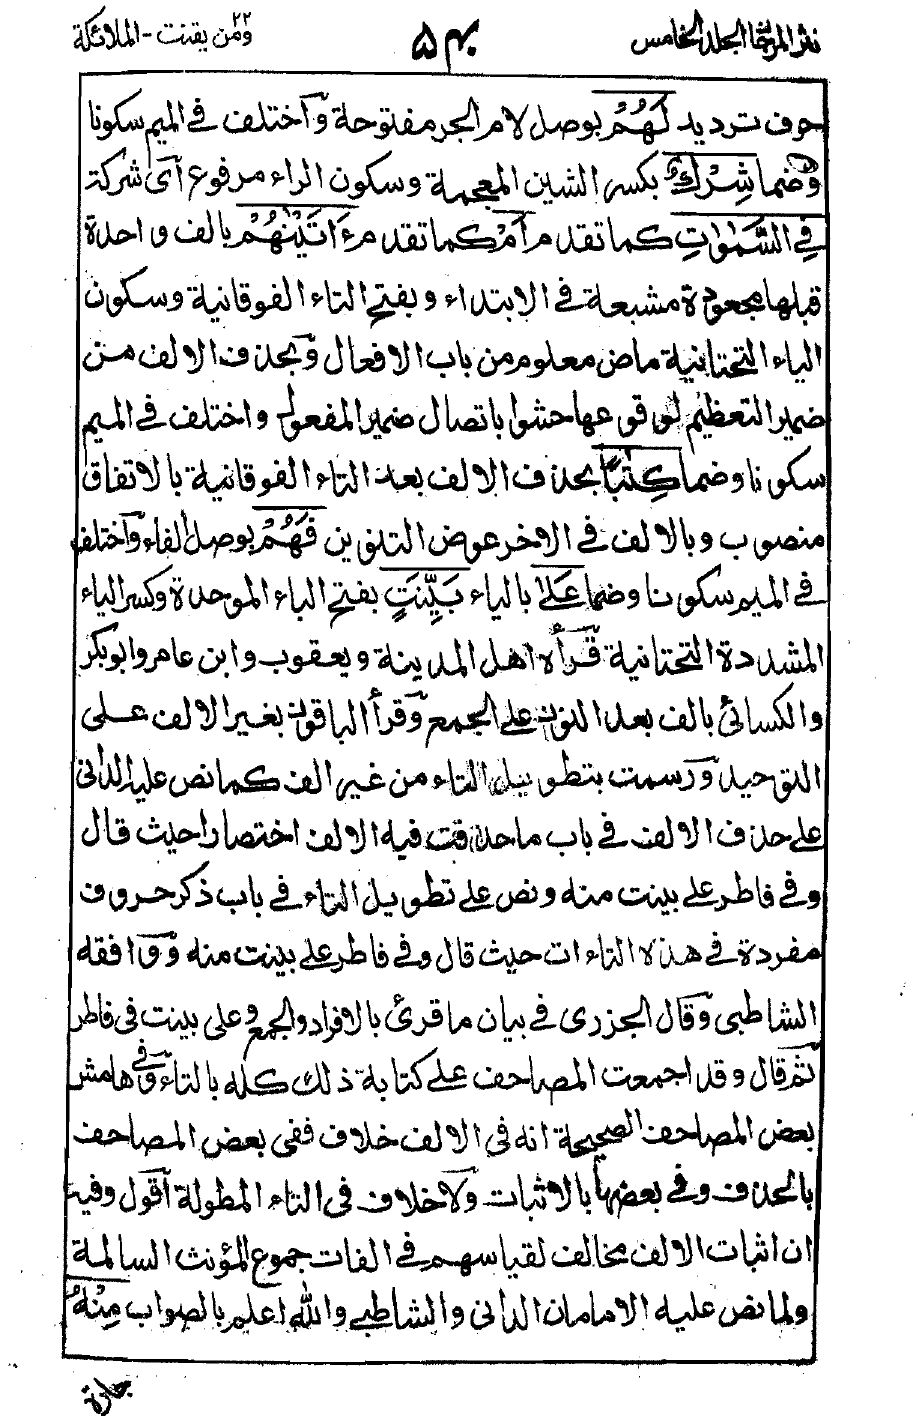 نثر المرجان الجلد الخامس
۵۴۰
ومن يقنت ۲۲ - الملائكة
حرف ترديد لَهُمْ بوصل لام الجر مفتوحة وآختلف في الميم سكونا
وضما شِرْكٌ بكسر الشين المعجمة وسكون الراء مرفوع آى شركة
فِي السَّمٰوٰتِ كما تقدم اَمْ كما تقدم ءَاتَيْنٰهُمْ بالف واحدة
قبلها مجعودة مشبعة في الابتداء وبفتح التاء الفوقانية وسكون
الياء التحتانية ماض معلوم من باب الافعال وبحذف الالف من
ضمير التعظيم لوقوعها حشوا باتصال ضمير المفعول واختلف في الميم
سكونا وضما كِتٰبًا بحذف الالف بعد التاء الفوقانية بالاتفاق
منصوب وبالالف في الاخر عوض التنوين فَهُمْ بوصل الفاء وآختلف
في الميم سكونا وضما عَلٰى بالياء بَيِّنَتٍ بفتح الباء الموحدة وكسر الياء
المشددة التحتانية قرأه اهل المدينة ويعقوب وابن عامر وابوبكر
والكسائي بالف بعد النون على الجمع وقرأ الباقون بغير الالف على
التوحيد ورسمت بتطويل التاء من غير الف كما نص عليه الداني
على حذف الالف في باب ما حذفت فيه الالف اختصارا حيث قال
وفي فاطر على بينت منه ونص على تطويل التاء في باب ذكر حروف
مفردة في هذه التاءات حيث قال وفي فاطر على بينت منه ووافقه
الشاطبي وقال الجزري في بيان ما قرئ بالافراد والجمع وعلى بينت في فاطر
ثم قال وقد اجمعت المصاحف على كتابة ذلك كله بالتاء وفي هامش
بعض المصاحف الصحيحة انه في الالف خلاف ففي بعض المصاحف
بالحذف وفي بعضها بالاثبات ولاخلاف في التاء المطولة آقول وفيه
ان اثبات الالف مخالف لقياسهم في الفات جموع المؤنث السالمة
ولما نص عليه الامامان الداني والشاطبي والله اعلم بالصواب مِنْهُ